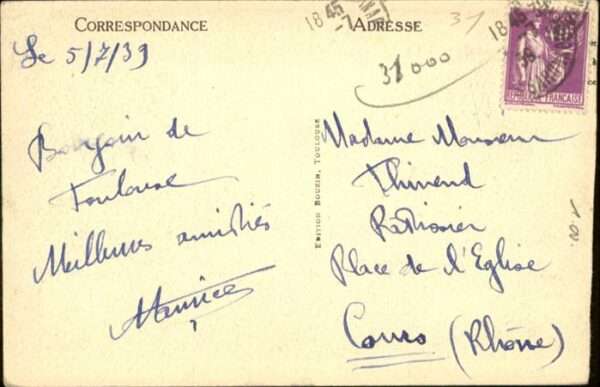 CORRESPONDANCE
Le 5/7/39
Bonjour de
Toulouse
Meilleures amitiés
Maurice
EDITION BOUZIN, TOULOUSE
ADRESSE
31
31000
18 45
18 45
RÉPUBLIQUE FRANÇAISE
Madame Monsieur
Thivend
Patissier
Place de l'Eglise
Cours (Rhône)
1.00